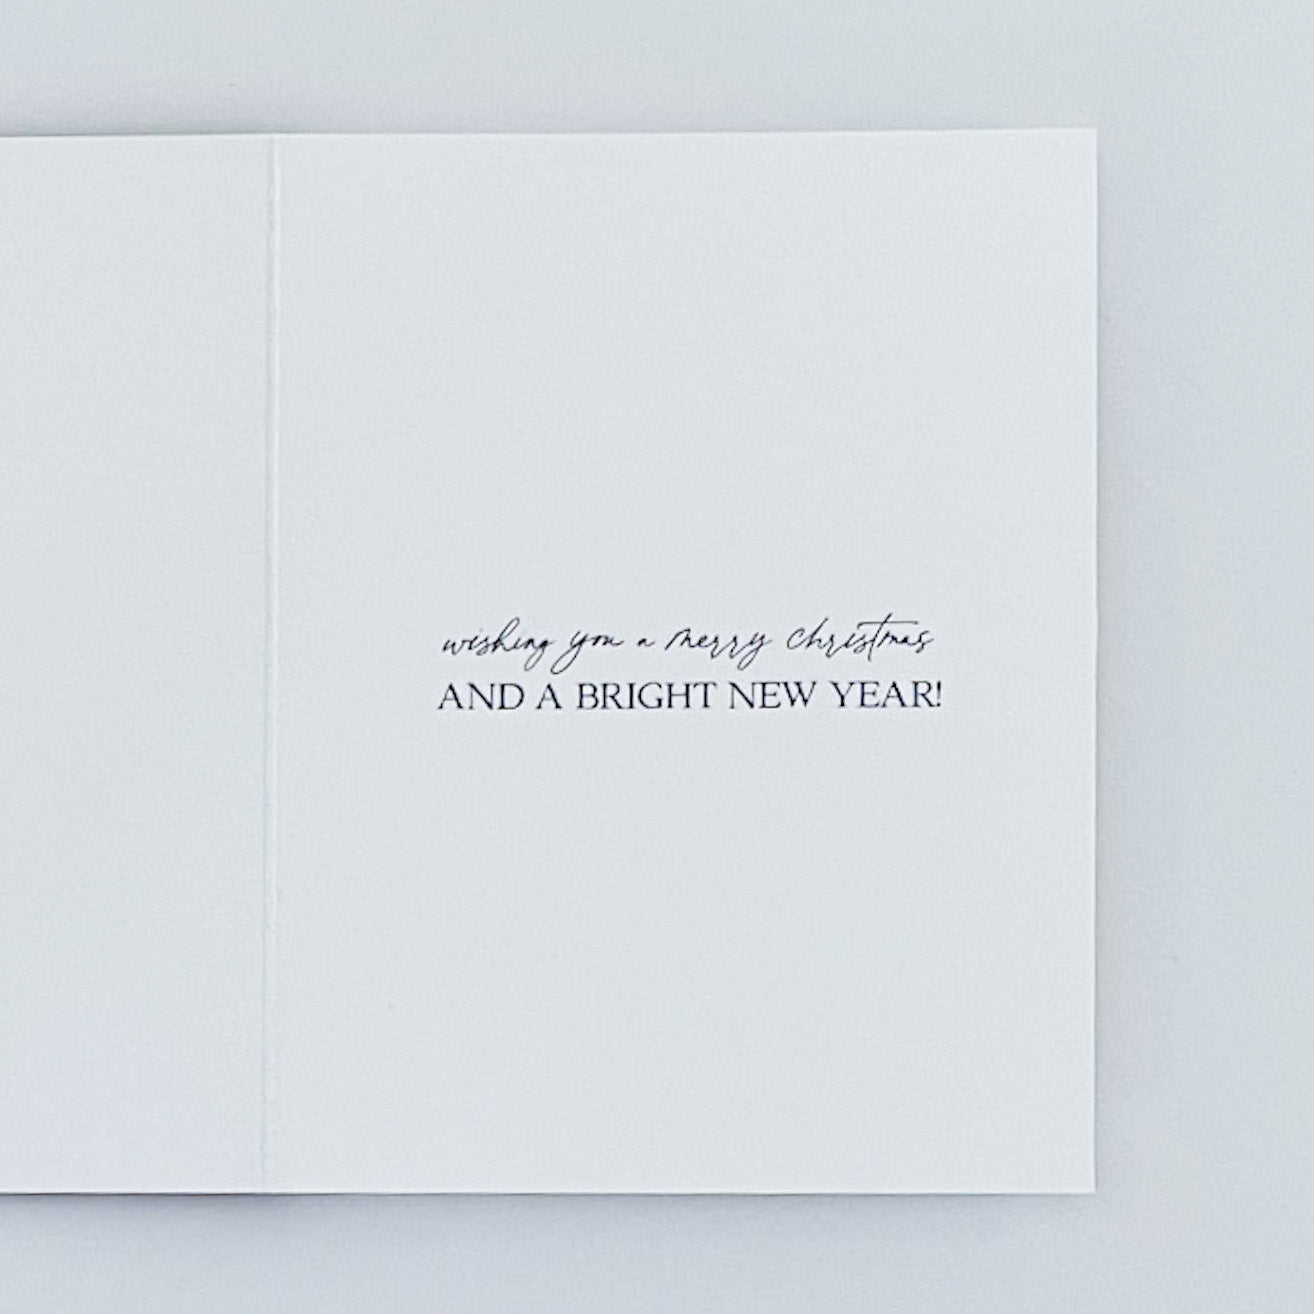 wishing you a merry christmas
AND A BRIGHT NEW YEAR!